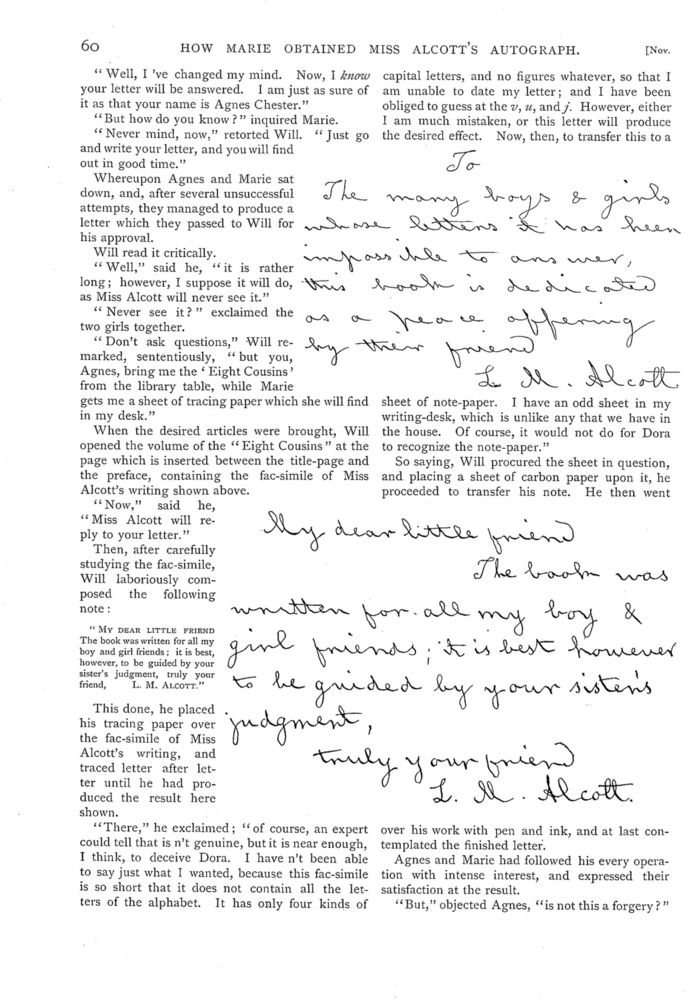 60
HOW MARIE OBTAINED MISS ALCOTT'S AUTOGRAPH.
[Nov.
"Well, I 've changed my mind. Now, I know
your letter will be answered. I am just as sure of
it as that your name is Agnes Chester."
"But how do you know?" inquired Marie.
"Never mind, now," retorted Will. "Just go
and write your letter, and you will find
out in good time."
Whereupon Agnes and Marie sat
down, and, after several unsuccessful
attempts, they managed to produce a
letter which they passed to Will for
his approval.
Will read it critically.
"Well," said he, "it is rather
long; however, I suppose it will do,
as Miss Alcott will never see it."
"Never see it?" exclaimed the
two girls together.
"Don't ask questions," Will re-
marked, sententiously, "but you,
Agnes, bring me the 'Eight Cousins'
from the library table, while Marie
gets me a sheet of tracing paper which she will find
in my desk."
When the desired articles were brought, Will
opened the volume of the "Eight Cousins" at the
page which is inserted between the title-page and
the preface, containing the fac-simile of Miss
Alcott's writing shown above.
"Now," said he,
"Miss Alcott will re-
ply to your letter."
Then, after carefully
studying the fac-simile,
Will laboriously com-
posed the following
note:
"MY DEAR LITTLE FRIEND
The book was written for all my
boy and girl friends; it is best,
however, to be guided by your
sister's judgment, truly your
friend, L. M. ALCOTT."
This done, he placed
his tracing paper over
the fac-simile of Miss
Alcott's writing, and
traced letter after let-
ter until he had pro-
duced the result here
shown.
"There," he exclaimed; "of course, an expert
could tell that is n't genuine, but it is near enough,
I think, to deceive Dora. I have n't been able
to say just what I wanted, because this fac-simile
is so short that it does not contain all the let-
ters of the alphabet. It has only four kinds of
capital letters, and no figures whatever, so that I
am unable to date my letter; and I have been
obliged to guess at the v, u, and j. However, either
I am much mistaken, or this letter will produce
the desired effect. Now, then, to transfer this to a
To
The many boys & girls
whose letters it has been
impossible to answer,
this book is dedicated
as a peace offering
by their friend
L. M. Alcott
sheet of note-paper. I have an odd sheet in my
writing-desk, which is unlike any that we have in
the house. Of course, it would not do for Dora
to recognize the note-paper."
So saying, Will procured the sheet in question,
and placing a sheet of carbon paper upon it, he
proceeded to transfer his note. He then went
My dear little friend
The book was
written for all my boy &
girl friends; it is best however
to be guided by your sister's
judgment,
truly your friend
L. M. Alcott.
over his work with pen and ink, and at last con-
templated the finished letter.
Agnes and Marie had followed his every opera-
tion with intense interest, and expressed their
satisfaction at the result.
"But," objected Agnes, "is not this a forgery?"